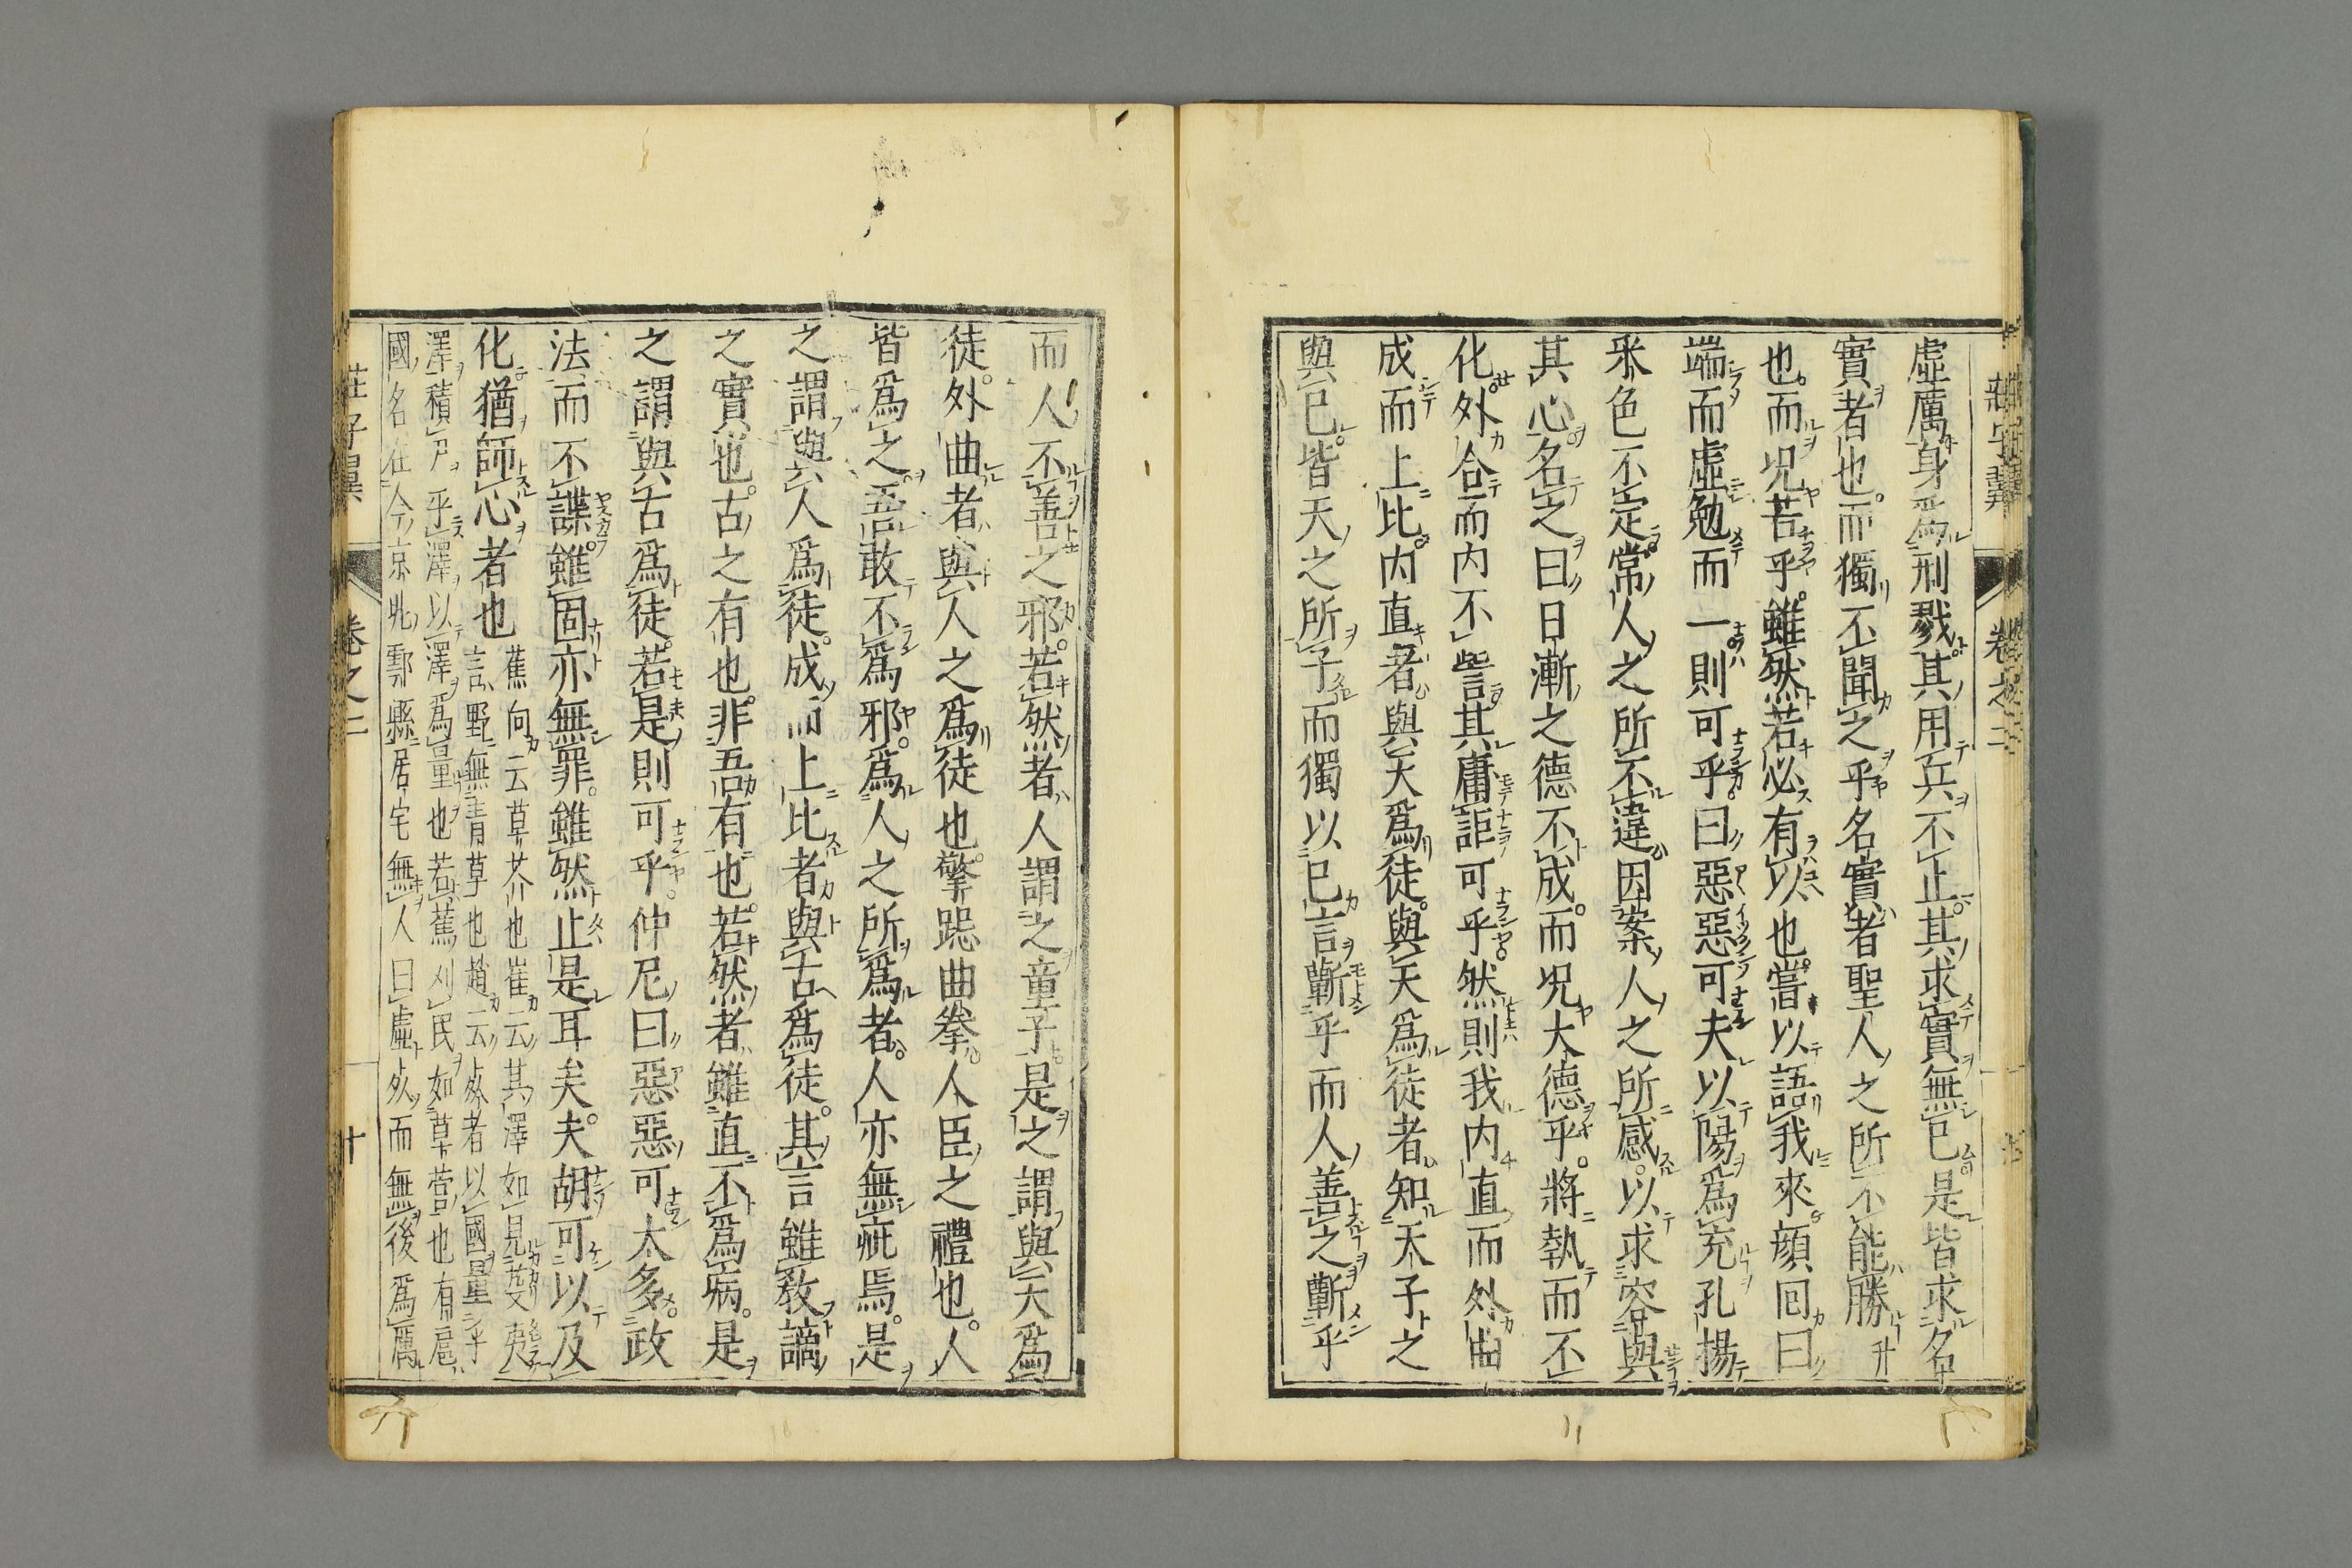 虛厲身爲刑戮其用兵不止其求實無已是皆求名
實者也而獨不聞之乎名實者聖人之所不能勝升
也而況若乎雖然若必有以也嘗以語我來顏回曰
端而虛勉而一則可乎曰惡惡可夫以陽爲充孔揚
釆色不定常人之所不違因案人之所感以求容與
其心名之曰日漸之德不成而況大德乎將執而不
化外合而内不訾其庸詎可乎然則我内直而外曲
成而上比内直者與天爲徒與天爲徒者知天子之
與已皆天之所子而獨以已言蘄乎而人善之蘄乎
而人不善之邪若然者人謂之童子是之謂與天爲
徒外曲者與人之爲徒也擎跽曲拳人臣之禮也人
皆爲之吾敢不爲邪爲人之所爲者人亦無疵焉是
之謂與人爲徒成而上比者與古爲徒其言雖敎謫
之實也古之有也非吾有也若然者雖直不爲病是
之謂與古爲徒若是則可乎仲尼曰惡惡可太多政
法而不諜雖固亦無罪雖然止是耳矣夫胡可以及
化猶師心者也
蕉向云草芥也崔云其澤如見芟夷
言野無青草也趙云死者以國量乎
澤積尸乎澤以澤爲量也若蕉刈民如草菅也有扈
國名在今京兆鄠縣居宅無人曰虛死而無後爲厲
莊子翼 卷之二 十